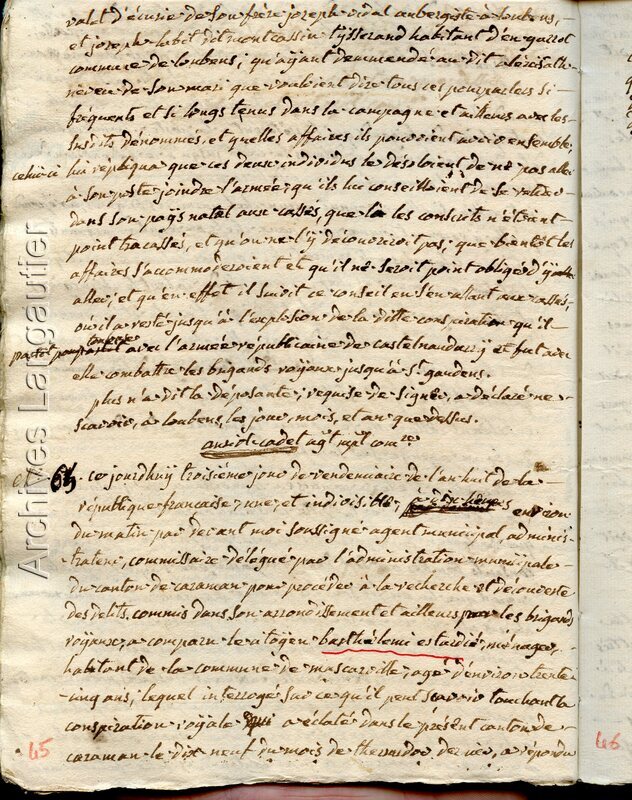 valet d'écurie de son frère joseph vidal aubergiste à loubens,
et joseph labit dit montcassin tisserand habitant d'en garrot
commune de loubens, qu'ayant demmendé au dit
néveu de son mari que vouloient dire tous ces pourparlers si
fréquents et si longs tenus dans la campagne et ailleurs avec les
susdits dénommés, et quelles affaires ils pouvoient avoir ensemble,
celui-ci lui repliqua que ces deux individus le désoloient de ne pas aller
à son poste joindre l'armée, qu'ils lui conseilloient de se retirer
dans son païs natal aux cassés, que là les conscrits n'étoient
point tracassés, et qu'on ne l'y découvriroit pas, que bientôt les
affaires s'accommoderoient et qu'il ne seroit point obligé d'y
aller, et qu'en effet il suivit ce conseil en s'en allant aux cassés,
où il a resté jusqu'à l'explosion de la ditte conspiration qu'il
partit pour avec l'armée républicaine de castelnaudarry et fut avec
elle combattre les brigands royaux jusqu'à St. gaudens.
plus n'a dit la déposante, requise de signer, a déclaré ne
scavoir, à loubens, les jour, mois, et an que dessus.
auriol cadet agt mpl comre
64. ce jourdhuy troisième jour de vendemiaire de l'an huit de la
république francaise, une, et indivisible, environ
du matin par devant moi soussigné agent municipal, adminis-
trateur, commissaire délégué par l'administration municipale
du canton de caraman pour procéder à la recherche et découverte
des delits, commis dans son arrondissement et ailleurs par les brigands
royaux, a comparu le citoyen barthélemi estadié, ménager,
habitant de la commune de mascarville, agé d'environ trente
cinq ans, lequel interrogé sur ce qu'il peut scavoir touchant la
conspiration royale qui a éclaté dans le présent canton de
caraman le dix neuf du mois de thermidor dernier, a répondu
45
46
Archives Langautier